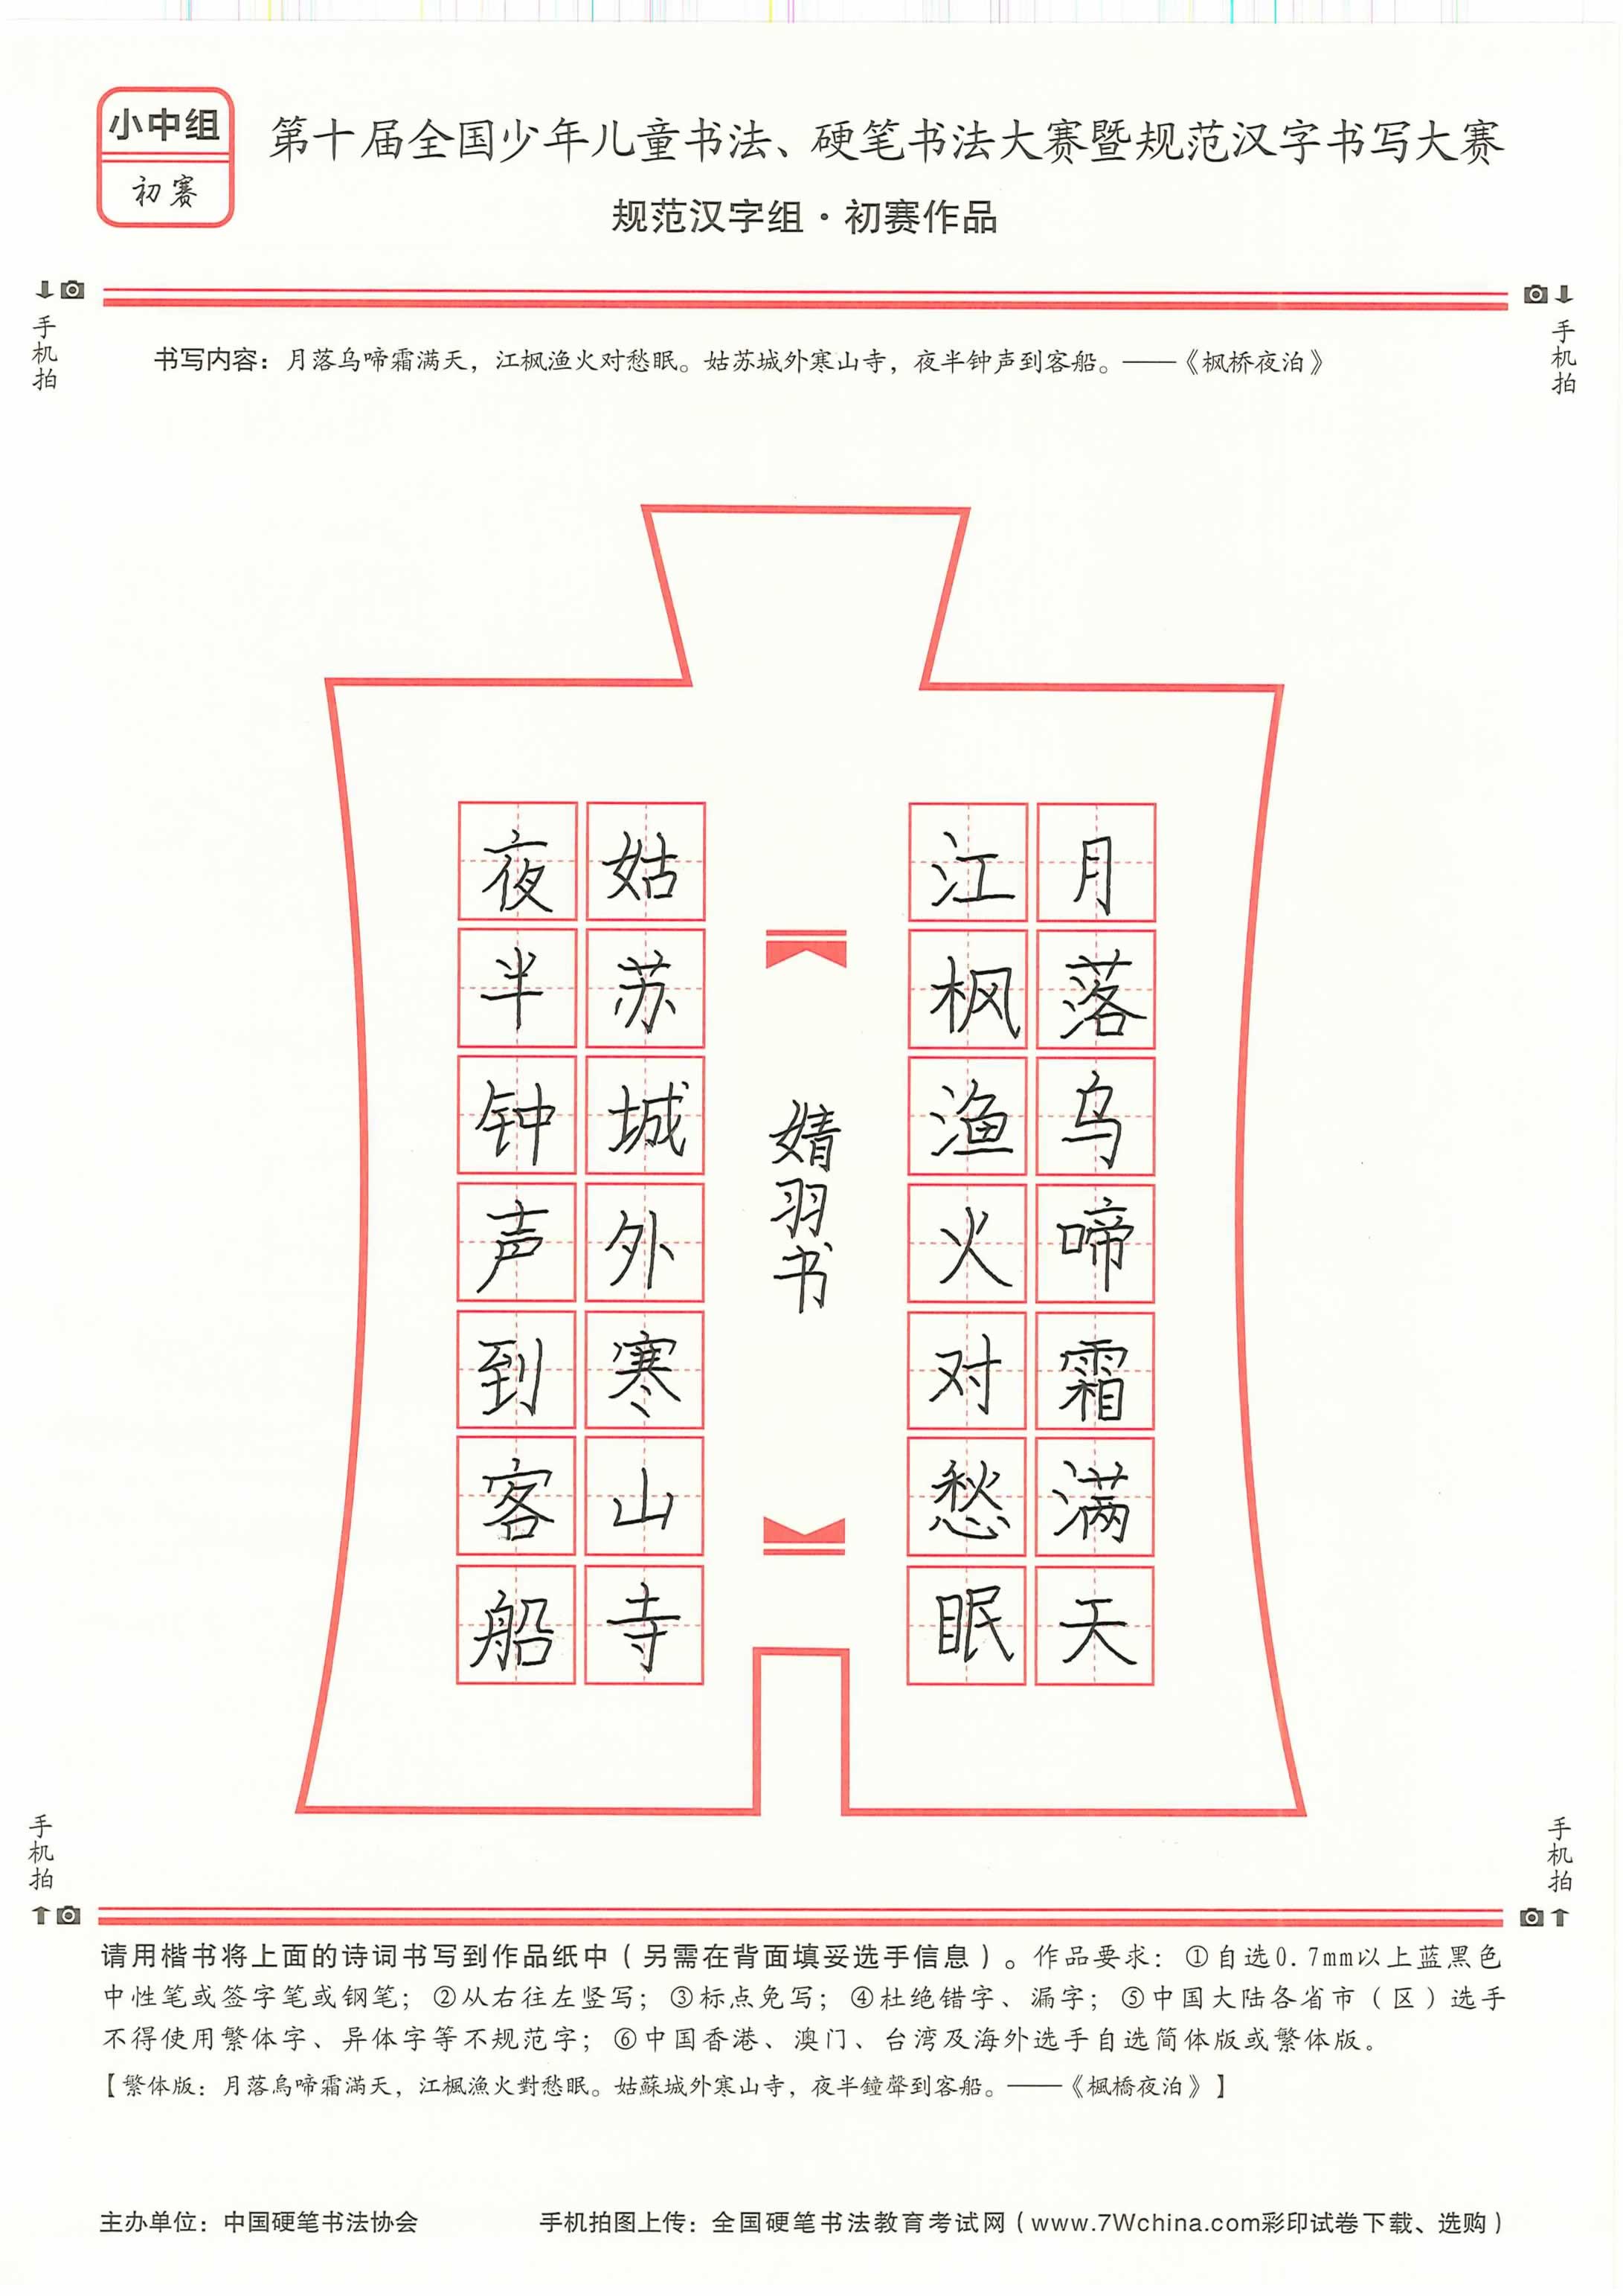 小中组
初赛
第十届全国少年儿童书法、硬笔书法大赛暨规范汉字书写大赛
规范汉字组·初赛作品
手机拍
手机拍
书写内容：月落乌啼霜满天，江枫渔火对愁眠。姑苏城外寒山寺，夜半钟声到客船。——《枫桥夜泊》
月落乌啼霜满天
江枫渔火对愁眠
婧羽书
姑苏城外寒山寺
夜半钟声到客船
手机拍
手机拍
请用楷书将上面的诗词书写到作品纸中（另需在背面填妥选手信息）。作品要求：①自选0.7mm以上蓝黑色
中性笔或签字笔或钢笔；②从右往左竖写；③标点免写；④杜绝错字、漏字；⑤中国大陆各省市（区）选手
不得使用繁体字、异体字等不规范字；⑥中国香港、澳门、台湾及海外选手自选简体版或繁体版。
【繁体版：月落烏啼霜滿天，江楓漁火對愁眠。姑蘇城外寒山寺，夜半鐘聲到客船。——《楓橋夜泊》】
主办单位：中国硬笔书法协会
手机拍图上传：全国硬笔书法教育考试网（www.7Wchina.com彩印试卷下载、选购）